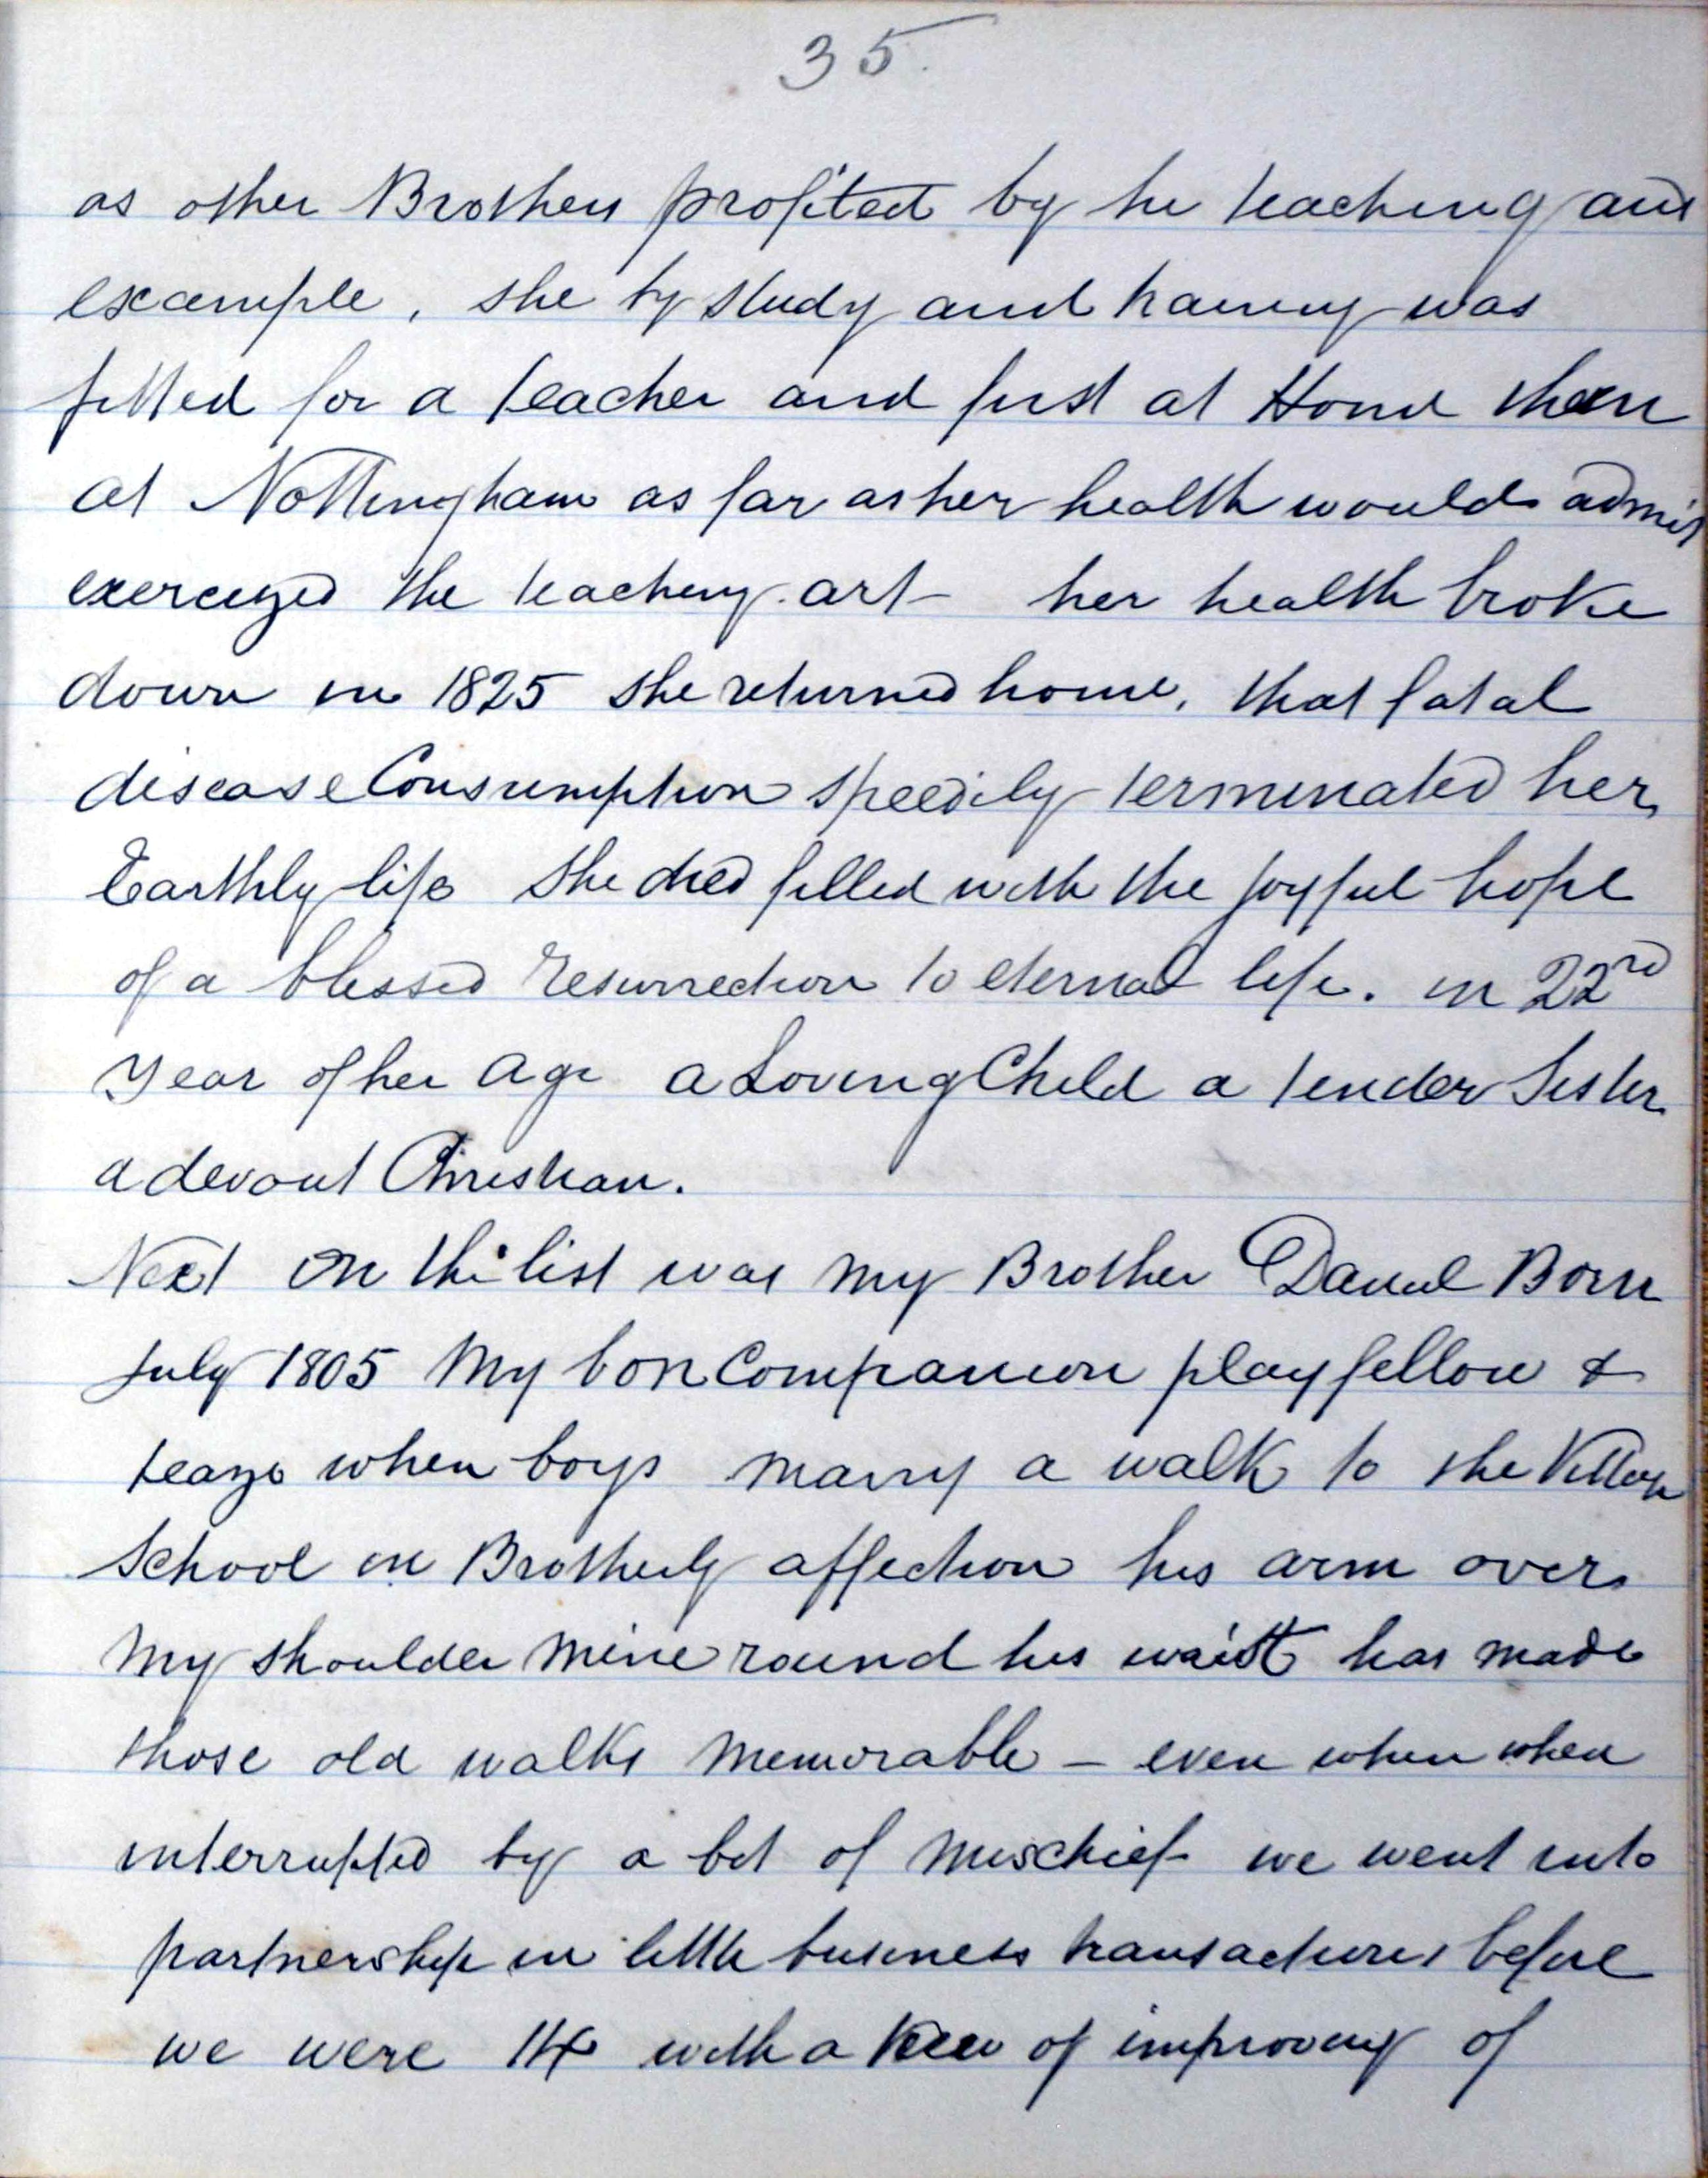 35.
as other Brothers profited by her teaching and
example, she by study and training was
fitted for a teacher and first at Home then
at Nottingham as far as her health would admit
exercized the teaching art - her health broke
down in 1825 she returned home, that fatal
disease Consumption speedily terminated her
Earthly life she died filled with the joyful hope
of a blessed resurrection to eternal life. in 22nd
year of her age a Loving Child a tender Sister
a devout Christian.
Next on the list was my Brother Daniel Born
July 1805 My bon Companion playfellow &
teaze when boys many a walk to the Village
School in Brotherly affection his arm over
my shoulder mine round his waist has made
those old walks memorable - even when when
interrupted by a bit of mischief we went into
partnership in little business transactions before
we were 14 with a view of improving of